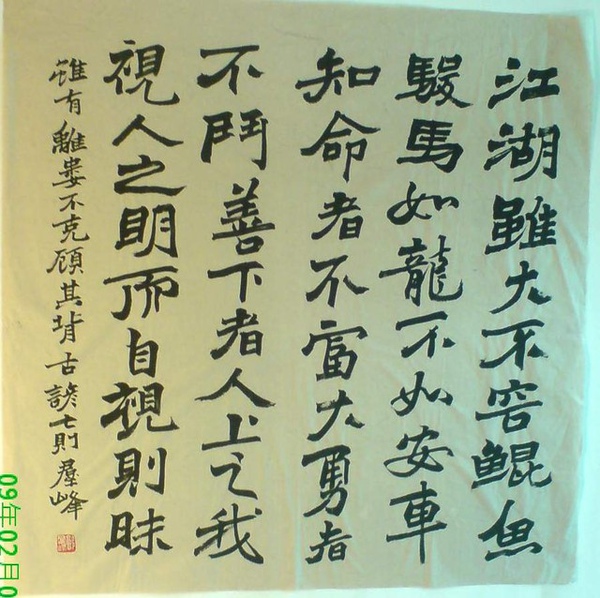 江湖雖大不容鯤魚
駿馬如龍不如安車
知命者不富大勇者
不鬥善下者人上之我
視人之明而自視則昧
雖有離婁不克顧其背古諺七則峰
09年02月0